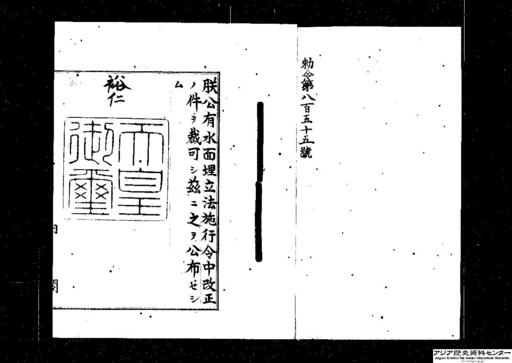 勅令第八百五十五號
朕公有水面埋立法施行令中改正
ノ件ヲ裁可シ茲ニ之ヲ公布セシ
ム
裕仁
天皇
御璽
内閣
アジア歴史資料センター
Japan Center for Asian Historical Records